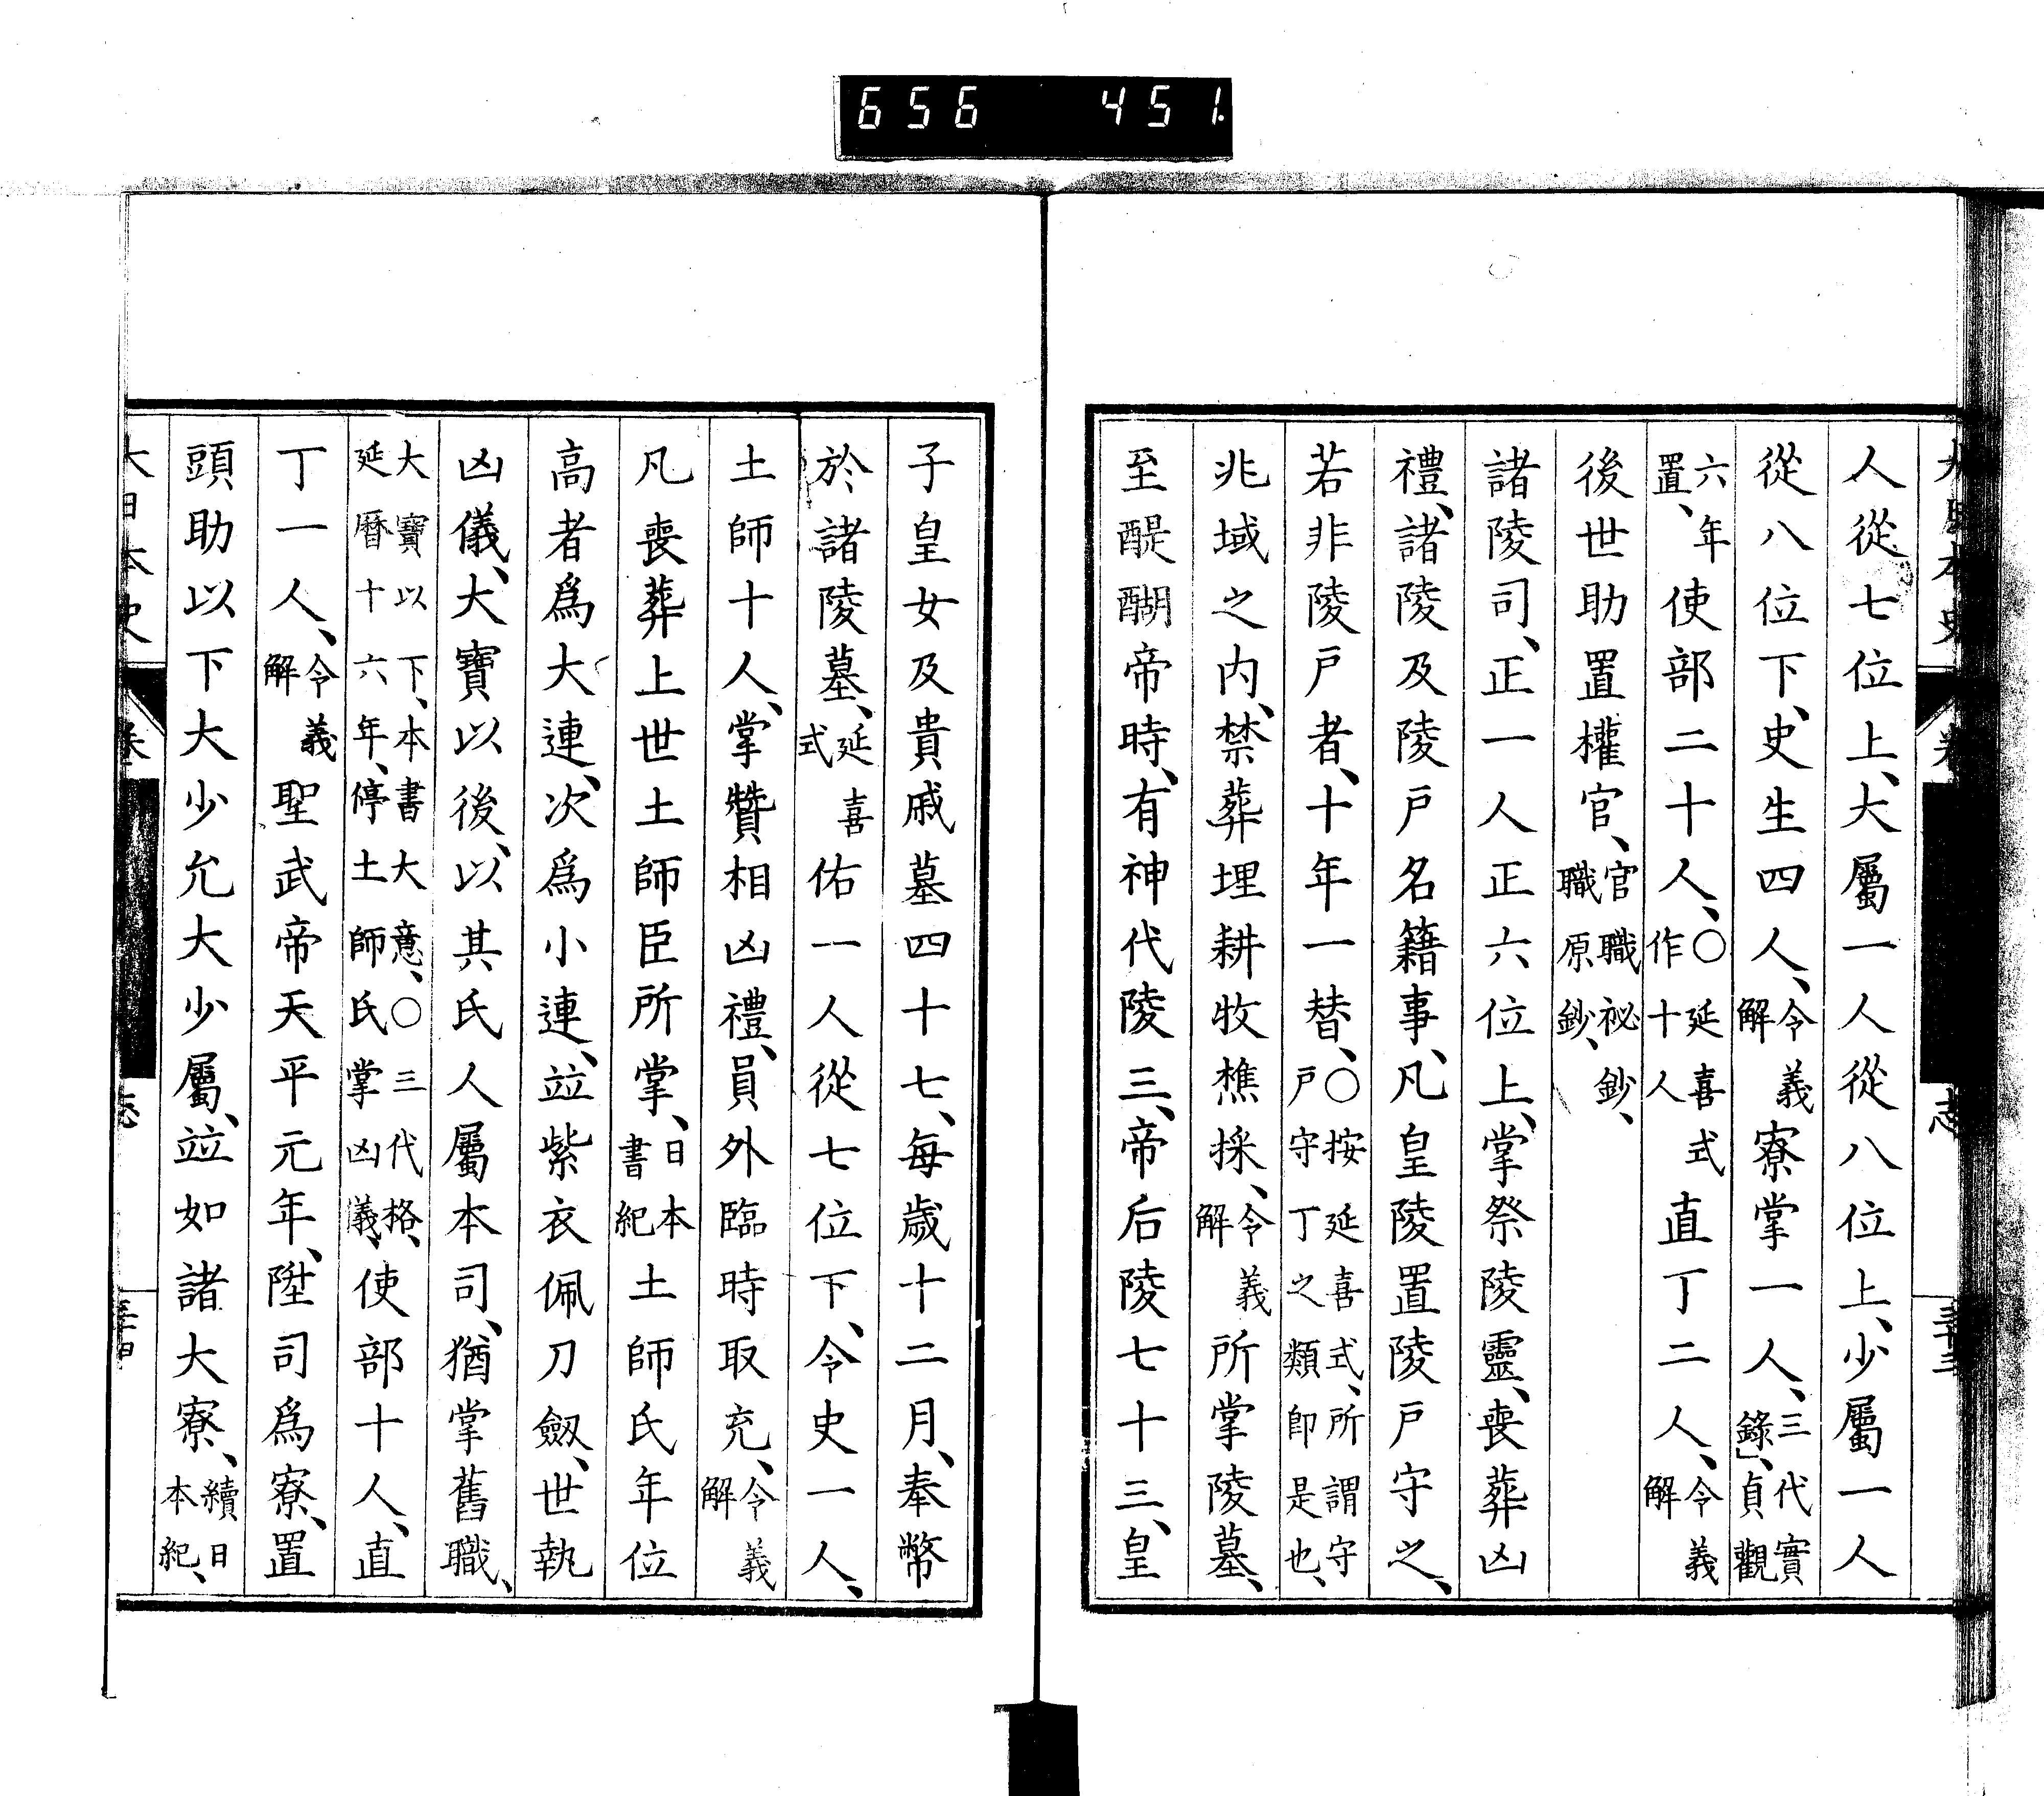 656 451
大日本史 卷 志 三十三
人從七位上、大屬一人從八位上、少屬一人
從八位下、史生四人、令義解寮掌一人、三代實錄、貞觀
六年置、使部二十人、○延喜式作十人直丁二人、令義解
後世助置權官、官職祕鈔、職原鈔、
諸陵司、正一人正六位上、掌祭陵靈、喪葬凶
禮、諸陵及陵戸名籍事、凡皇陵置陵戸守之、
若非陵戸者、十年一替、○按延喜式、所謂守戸守丁之類卽是也、
兆域之內、禁葬埋耕牧樵採、令義解所掌陵墓、
至醍醐帝時、有神代陵三、帝后陵七十三、皇
子皇女及貴戚墓四十七、每歲十二月、奉幣
於諸陵墓、延喜式佑一人從七位下、令史一人、
土師十人、掌贊相凶禮、員外臨時取充、令義解
凡喪葬上世土師臣所掌、日本書紀土師氏年位
高者爲大連、次爲小連、竝紫衣佩刀劔、世執
凶儀、大寶以後、以其氏人屬本司、猶掌舊職、
大寶以下、本書大意、○三代格、延曆十六年、停土師氏掌凶儀、使部十人、直
丁一人、令義解聖武帝天平元年、陞司爲寮、置
頭助以下大少允大少屬、竝如諸大寮、續日本紀、
大日本史 卷 志 三十四